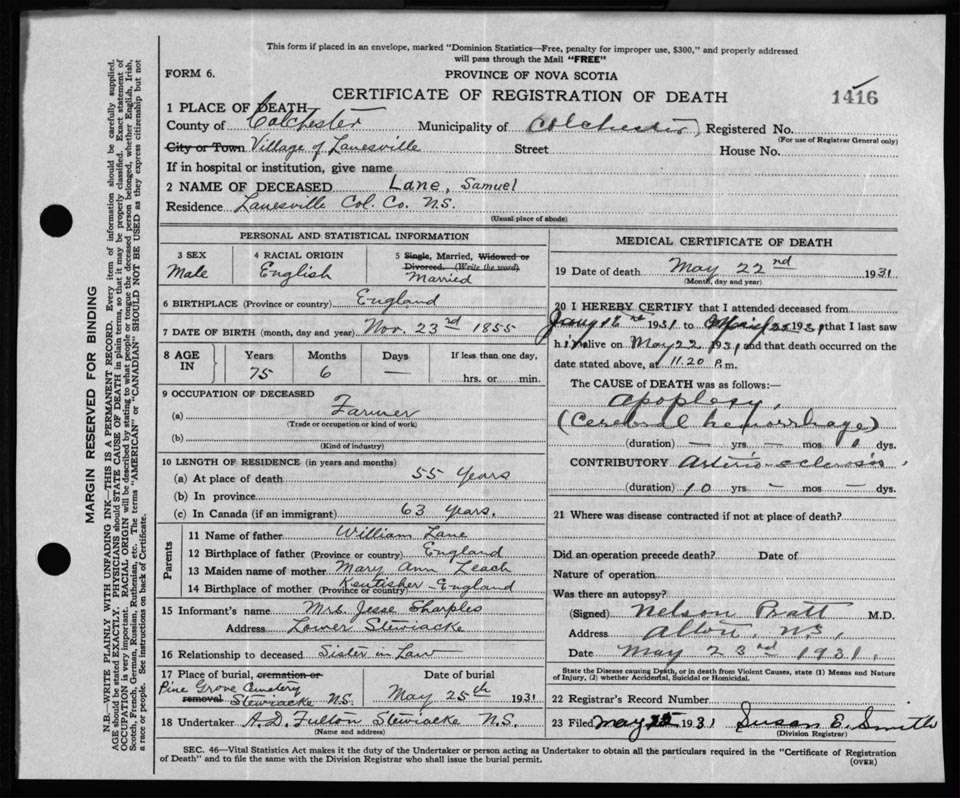 This form if placed in an envelope, marked "Dominion Statistics—Free, penalty for improper use, $300," and properly addressed
will pass through the Mail "FREE"
FORM 6.
PROVINCE OF NOVA SCOTIA
CERTIFICATE OF REGISTRATION OF DEATH
1416
1 PLACE OF DEATH
County of Colchester Municipality of Colchester Registered No.
(For use of Registrar General only)
City or Town Village of Lanesville Street House No.
If in hospital or institution, give name
2 NAME OF DECEASED Lane, Samuel
Residence Lanesville Col. Co. N.S.
(Usual place of abode)
PERSONAL AND STATISTICAL INFORMATION
3 SEX 4 RACIAL ORIGIN 5 Single, Married, Widowed or
Divorced. (Write the word)
Male English Married
6 BIRTHPLACE (Province or country) England
7 DATE OF BIRTH (month, day and year) Nov. 23rd 1855
8 AGE IN Years Months Days If less than one day,
75 6 — hrs. or min.
9 OCCUPATION OF DECEASED
(a) Farmer
(Trade or occupation or kind of work)
(b)
(Kind of industry)
10 LENGTH OF RESIDENCE (in years and months)
(a) At place of death 55 years
(b) In province
(c) In Canada (if an immigrant) 63 years.
Parents
11 Name of father William Lane
12 Birthplace of father (Province or country) England
13 Maiden name of mother Mary Ann Leach
14 Birthplace of mother (Province or country) England
15 Informant's name Mrs. Jesse Sharples
Address Lower Stewiacke
16 Relationship to deceased Sister in Law
17 Place of burial, cremation or removal Date of burial
Pine Grove Cemetery
Stewiacke N.S. May 25th 1931
18 Undertaker A.D. Fulton Stewiacke N.S.
(Name and address)
MEDICAL CERTIFICATE OF DEATH
19 Date of death May 22nd 1931
(Month, day and year)
20 I HEREBY CERTIFY that I attended deceased from
1931 to 193 , that I last saw
h alive on May 22 1931 and that death occurred on the
date stated above, at 11.20 P.m.
The CAUSE of DEATH was as follows:—
Apoplexy,
(Cerebral hemorrhage)
(duration) — yrs — mos 1 dys.
CONTRIBUTORY Arterio-sclerosis,
(duration) 10 yrs — mos — dys.
21 Where was disease contracted if not at place of death?
Did an operation precede death? Date of
Nature of operation
Was there an autopsy?
(Signed) Nelson Pratt M.D.
Address N.S.,
Date May 23rd 1931.
State the Disease causing Death, or in death from Violent Causes, state (1) Means and Nature
of Injury, (2) whether Accidental, Suicidal or Homicidal.
22 Registrar's Record Number
23 Filed May 1931 Susan E. Smith
(Division Registrar)
SEC. 46—Vital Statistics Act makes it the duty of the Undertaker or person acting as Undertaker to obtain all the particulars required in the "Certificate of Registration
of Death" and to file the same with the Division Registrar who shall issue the burial permit.
(OVER)
MARGIN RESERVED FOR BINDING
N.B.—WRITE PLAINLY WITH UNFADING INK—THIS IS A PERMANENT RECORD. Every item of information should be carefully supplied.
AGE should be stated EXACTLY. PHYSICIANS should STATE CAUSE OF DEATH in plain terms, so that it may be properly classified. Exact statement of
OCCUPATION is very important. RACIAL ORIGIN will be described by stating to what people or tongue the deceased person belonged, whether English, Irish,
Scotch, French, German, Russian, Ruthenian, etc. The terms "AMERICAN" or "CANADIAN" SHOULD NOT BE USED as they express citizenship but not
a race or people. See instructions on back of Certificate.